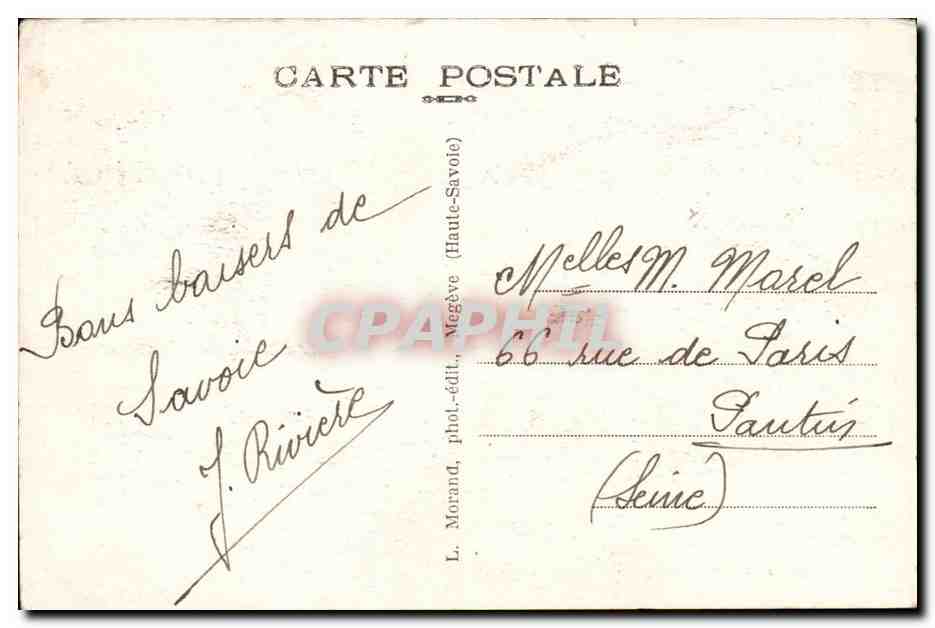 CARTE POSTALE
Bons baisers de
Savoie
J. Rivière
L. Morand, phot.-édit., Megève (Haute-Savoie)
CPAPHIL
Melles M. Marel
66 rue de Paris
Pantin
(Seine)